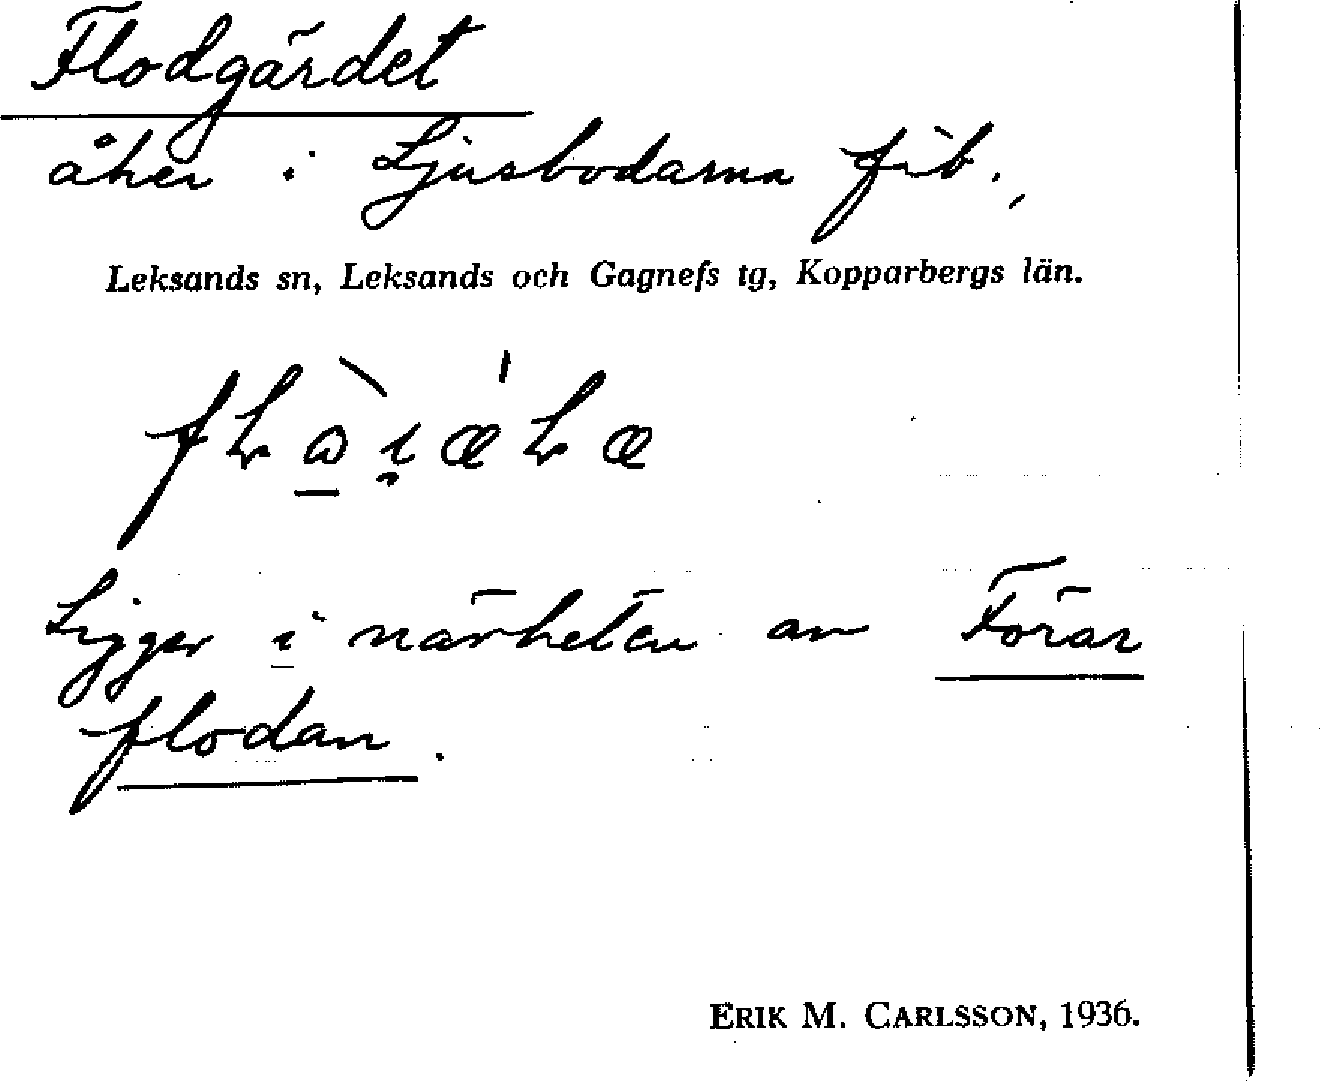 Flodgärdet
åker i Ljusbodarna fäb.,
Leksands sn, Leksands och Gagnefs tg, Kopparbergs län.
Ligger i närheten av Förar
flodan.
ERIK M. CARLSSON, 1936.